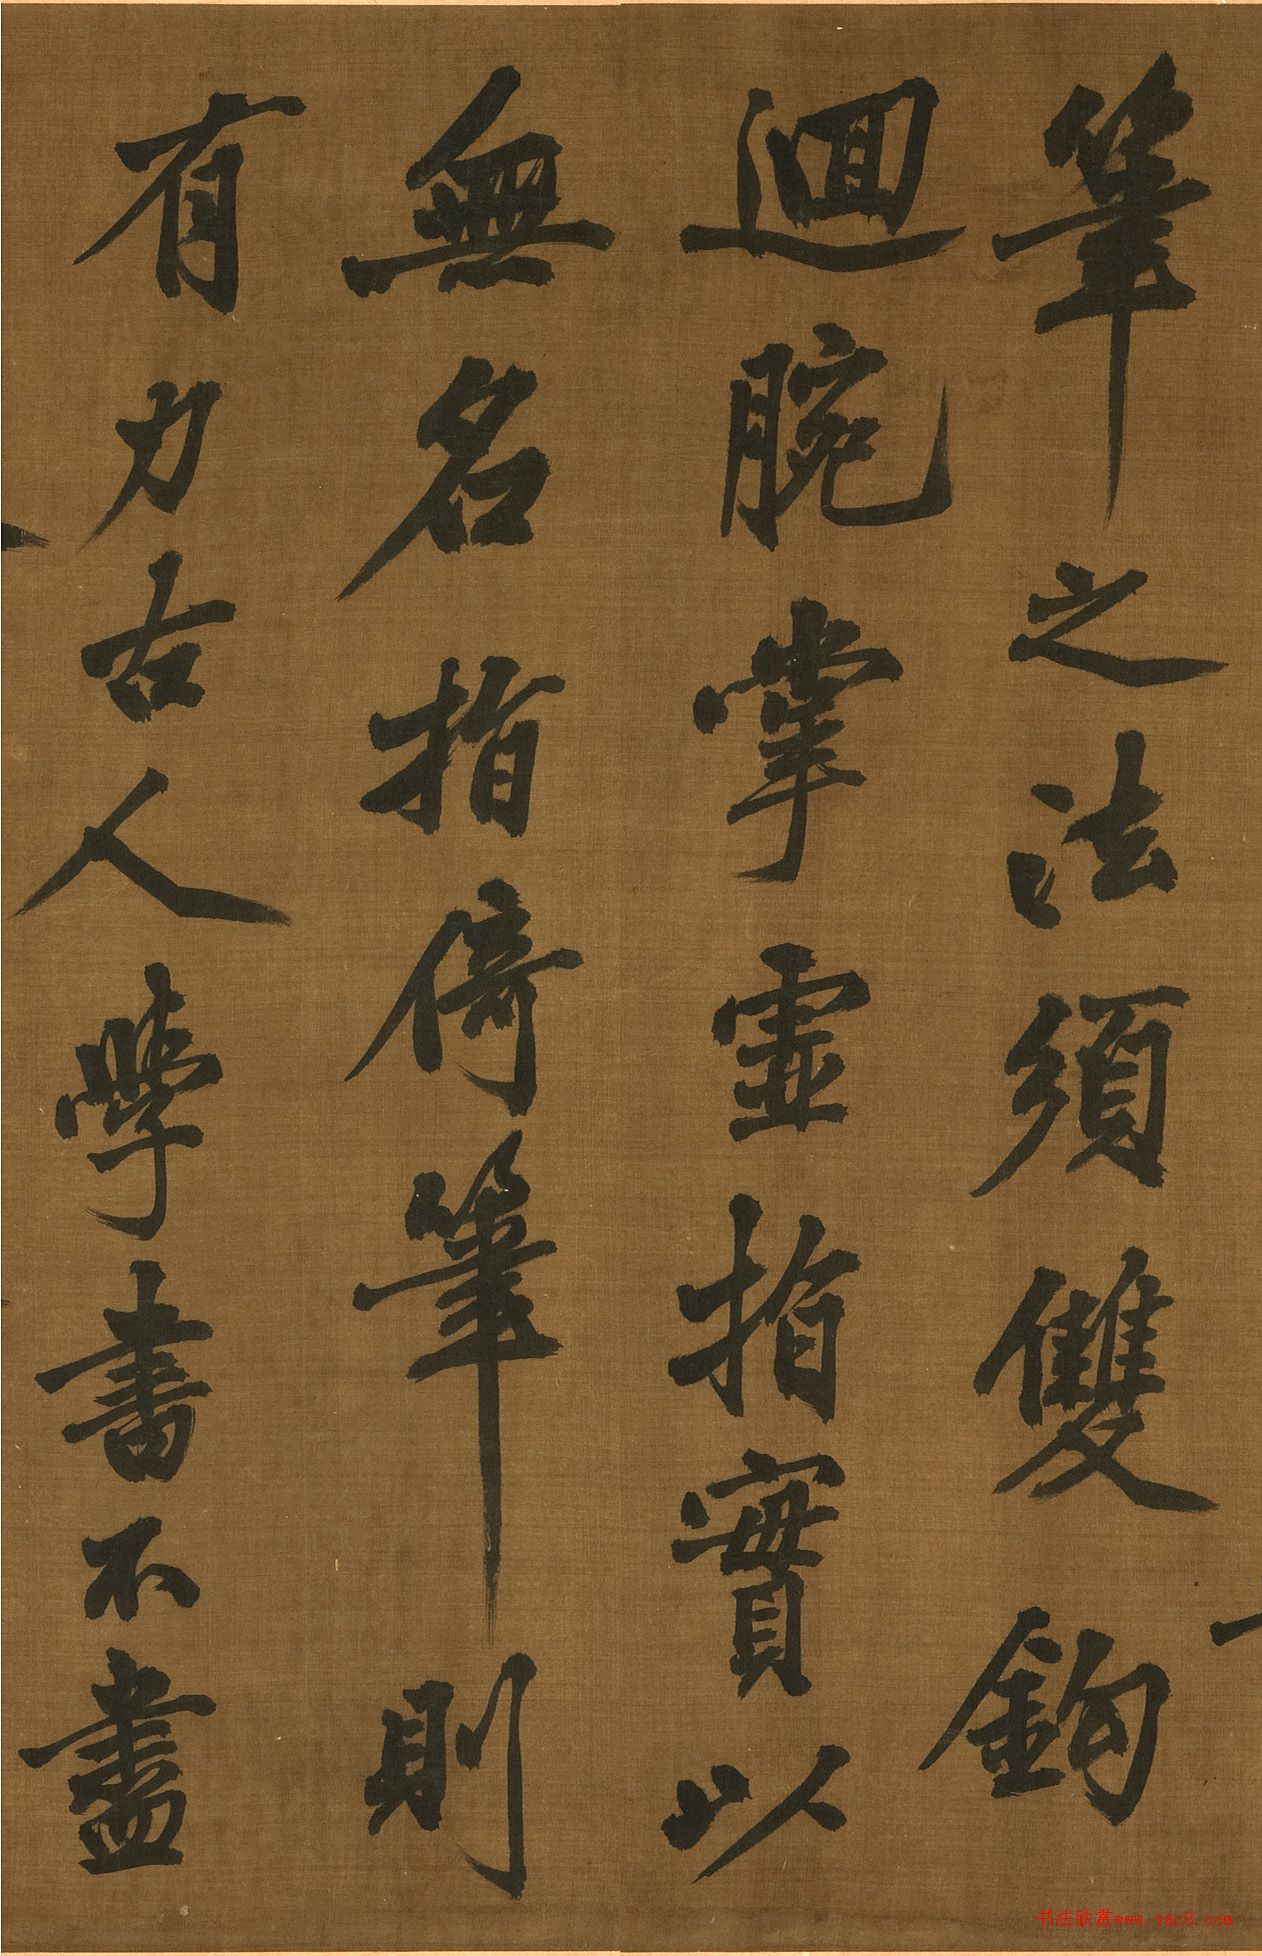 筆之法須雙鉤
迴腕掌虛指實以
無名指倚筆則
有力古人學書不盡
书法欣赏www.yac8.com